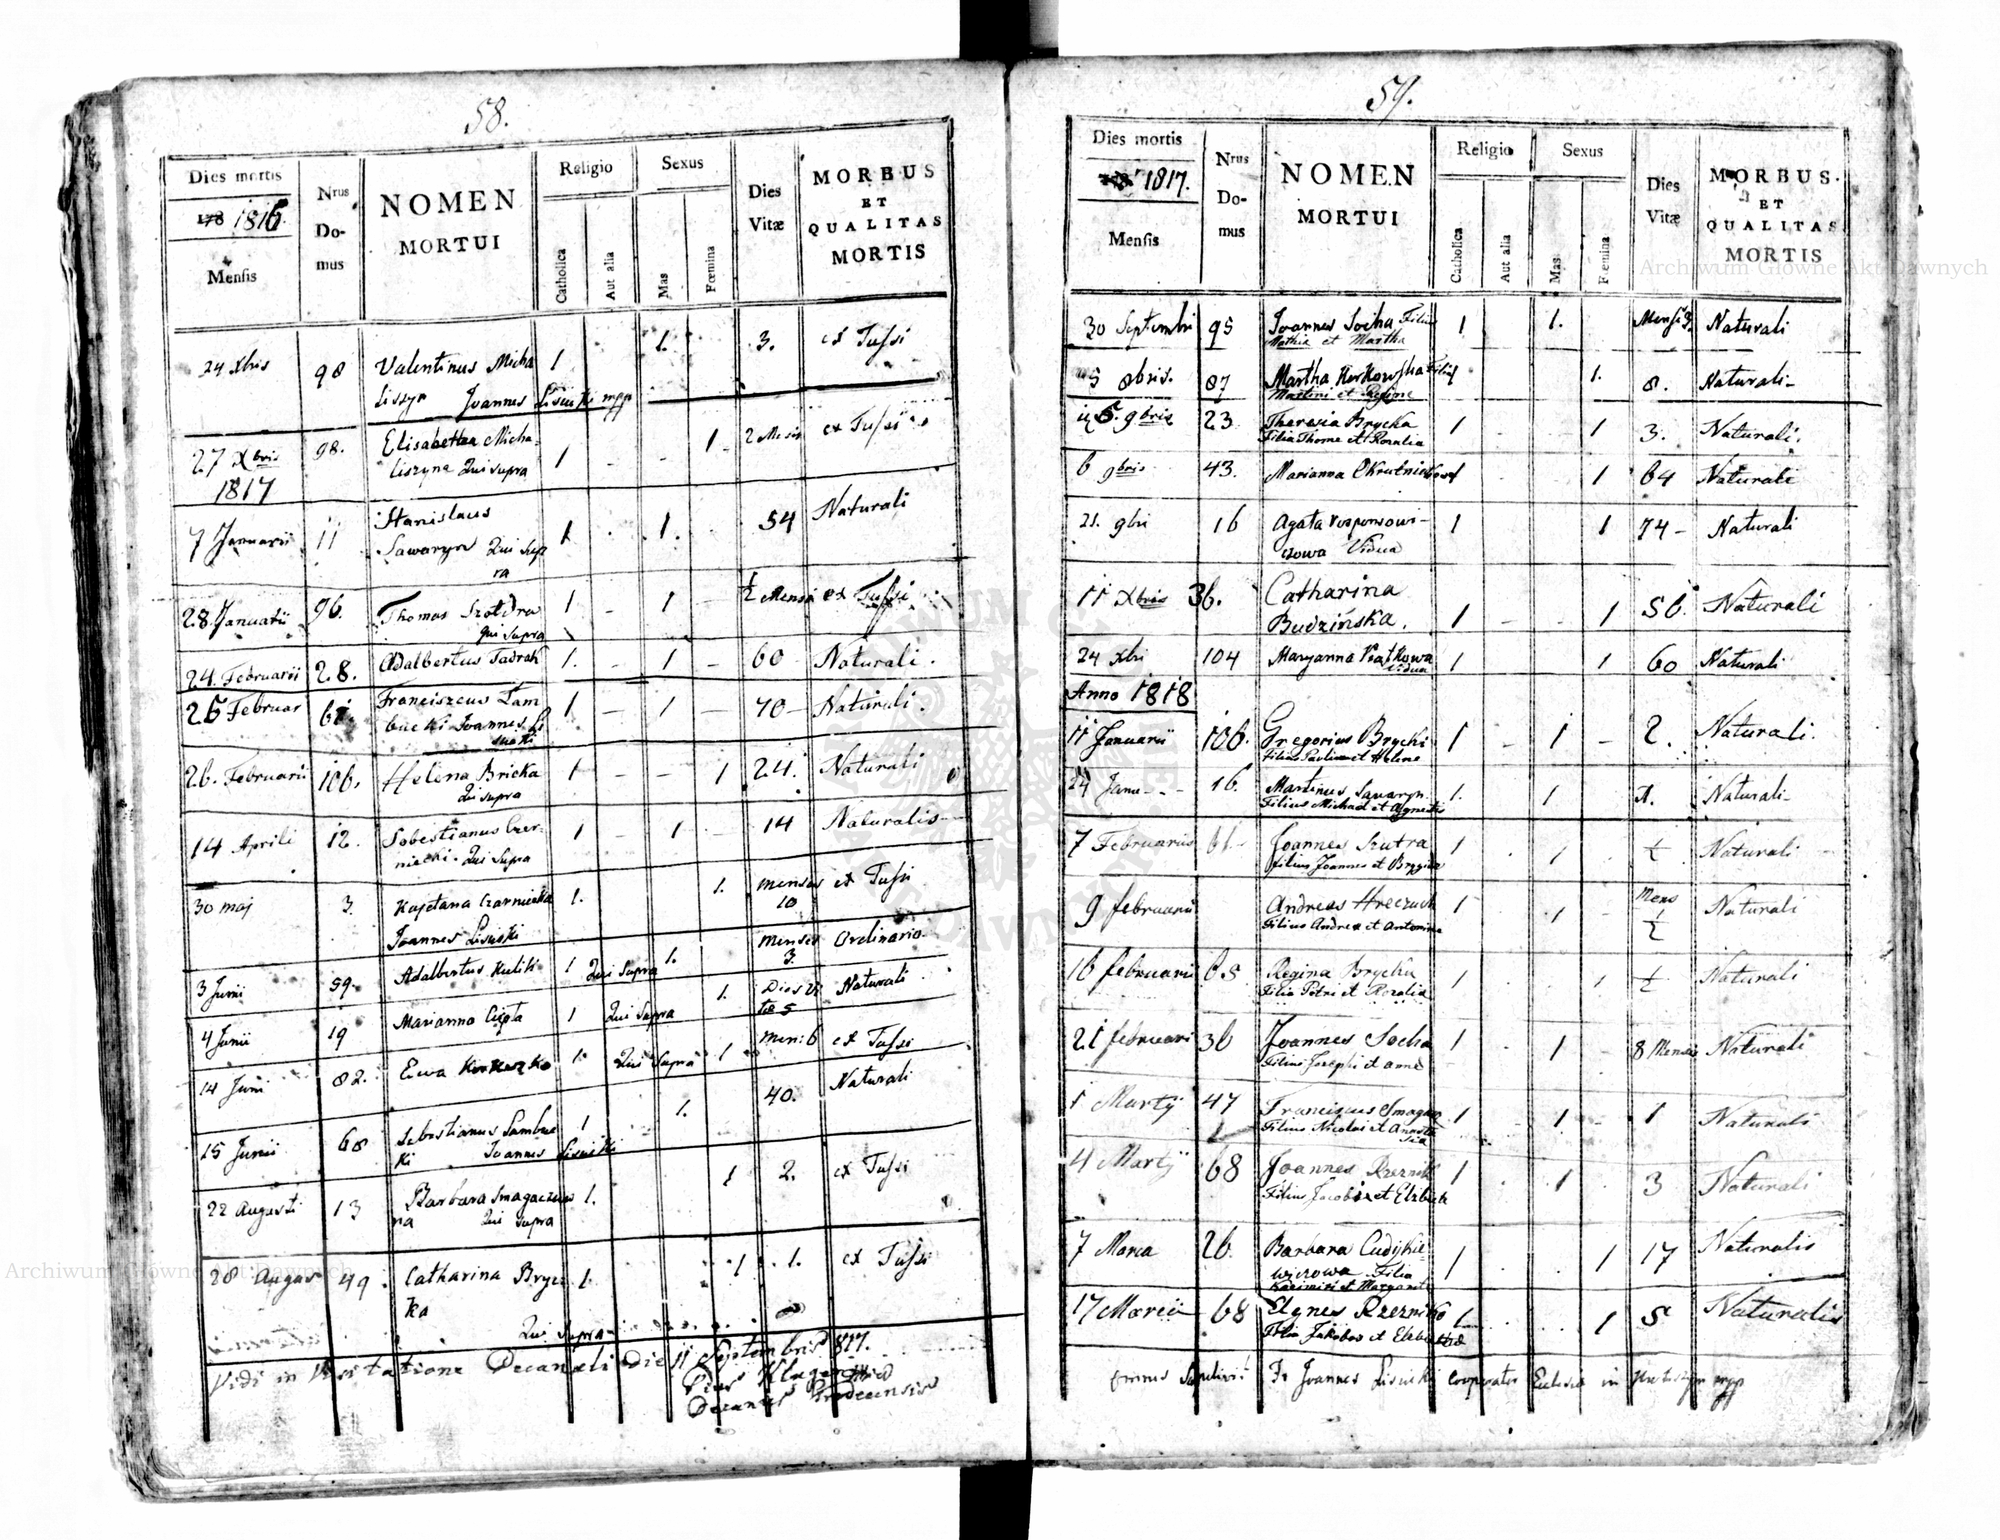 58.
Dies mortis
178 1816.
Mensis
Nrus
Do-
mus
NOMEN
MORTUI
Religio
Catholica
Aut alia
Sexus
Mas
Fœmina
Dies
Vitæ
MORBUS
ET
QUALITAS
MORTIS
24 Xbris 98 Valentinus Micha 1 1. 3. ex Tussi
liszyn Joannes Lisiecki mpp
27 Xbris 98. Elisabetha Micha- 1 1 2 Mesis ex Tussi
liszyna Qui supra
1817
7 Januarii 11 Stanislaus 1 1. 54 Naturali
Sawaryn Qui sup
ra
28 Januarii 96. Thomas 1 1 ½ Mensi ex Tussi
qui supra
24. Februarii 28. Adalbertus Tadrak 1. 1 60 Naturali.
25 Februar Franciszcus Lam 1 1 70 Naturali.
bucki Joannes Li
26. Februarii 106. Helena Bricka 1 1 24. Naturali
Qui supra
14 Aprili 12. Sobestianus Czer- 1 1 14 Naturalis
niecki. Qui Supra
30 maj 3. Kajetana Czarniecka 1. 1. menses ex Tussi
10
Joannes Lisiecki
3 Junii 59. Adalbertus Kulik 1 Qui Supra 1. menses Ordinario
3.
4 Junii 19 Marianna 1 Qui Supra 1. Dies vi Naturali
tæ 5
14 Juni 82. Ewa 1. Qui Supra 1 men: 6 ex Tussi
15 Junii 68 Sebestianus Lambuc 1 1. 40. Naturali
ki Joannes Lisiecki
22 Augusti 13 Barbara Smagaczew 1. 1 2. ex Tussi
na Qui Supra
28 Augus 49. Catharina Bryc 1. 1 1. ex Tussi
ka
Qui Supra
Vidi in Visitatione Decanali Die 11 Septembris 1817.
Decanus Grodecensis
59.
Dies mortis
1817.
Mensis
Nrus
Do-
mus
NOMEN
MORTUI
Religio
Catholica
Aut alia
Sexus
Mas
Fœmina
Dies
Vitæ
MORBUS.
ET
QUALITAS
MORTIS
30 Septembri 95 Joannes Socha Filius 1 1. Naturali
Mathia et Martha
5 8bris. 87 Martha Korkowska Filia 1. 8. Naturali
Martini et Regine
5. 9bris 23 Theresia Brycka 1 1 3. Naturali.
Filia Thome et Rosalia
6 9bris 43. Marianna 1 64 Naturali
21. 9bri 16 Agata 1 1 74 Naturali
Vidua
11 Xbris 36. Catharina
Budzińska. 1 1 56. Naturali
24 Xbri 104 Maryanna Piatkowa 1 1 60 Naturali
Vidua
Anno 1818
11 Januarii 106. Gregorius Brycki 1 1 2. Naturali.
Filius Pauli et Helene
24 Janu 16. Martinus Sawaryn. 1. 1 Naturali
Filius Michael et Agnetis
7 Februarius 61 Joannes Szutra 1 1 ½ Naturali
filius Joannes et
9 februarii Andreas Hreczuch 1 1 Mens Naturali
Filius Andrea et Antonina ½
16 februarii 65 Regina Brycka 1 1 ½ Naturali
Filia Petri et Rozalia
21 februari 36 Joannes Socha 1 1 8 Menses Naturali
Filius Josephi et anne
1 Martÿ 47 Franciscus Smagacz 1 1 1 Naturali
Filius Nicolai et Annasta
sia
4 Martÿ 68 Joannes Rzeznik 1 1 3 Naturali
Filius Jacobi et Elzbieta
7 Marca 26. Barbara 1 1 17 Naturalis
wiczowa Filia
Kazimiri et Margareta
17 Marcii 68 Agnes Rzeznicka 1 1 5 Naturalis
Filia Jakobus et
Omnes Sepelivit Fr Joannes Lisiecki cooperator Eclesia in mpp
Archiwum Główne Akt Dawnych
Archiwum Główne Akt Dawnych
ARCHIWUM GŁÓWNE AKT DAWNYCH